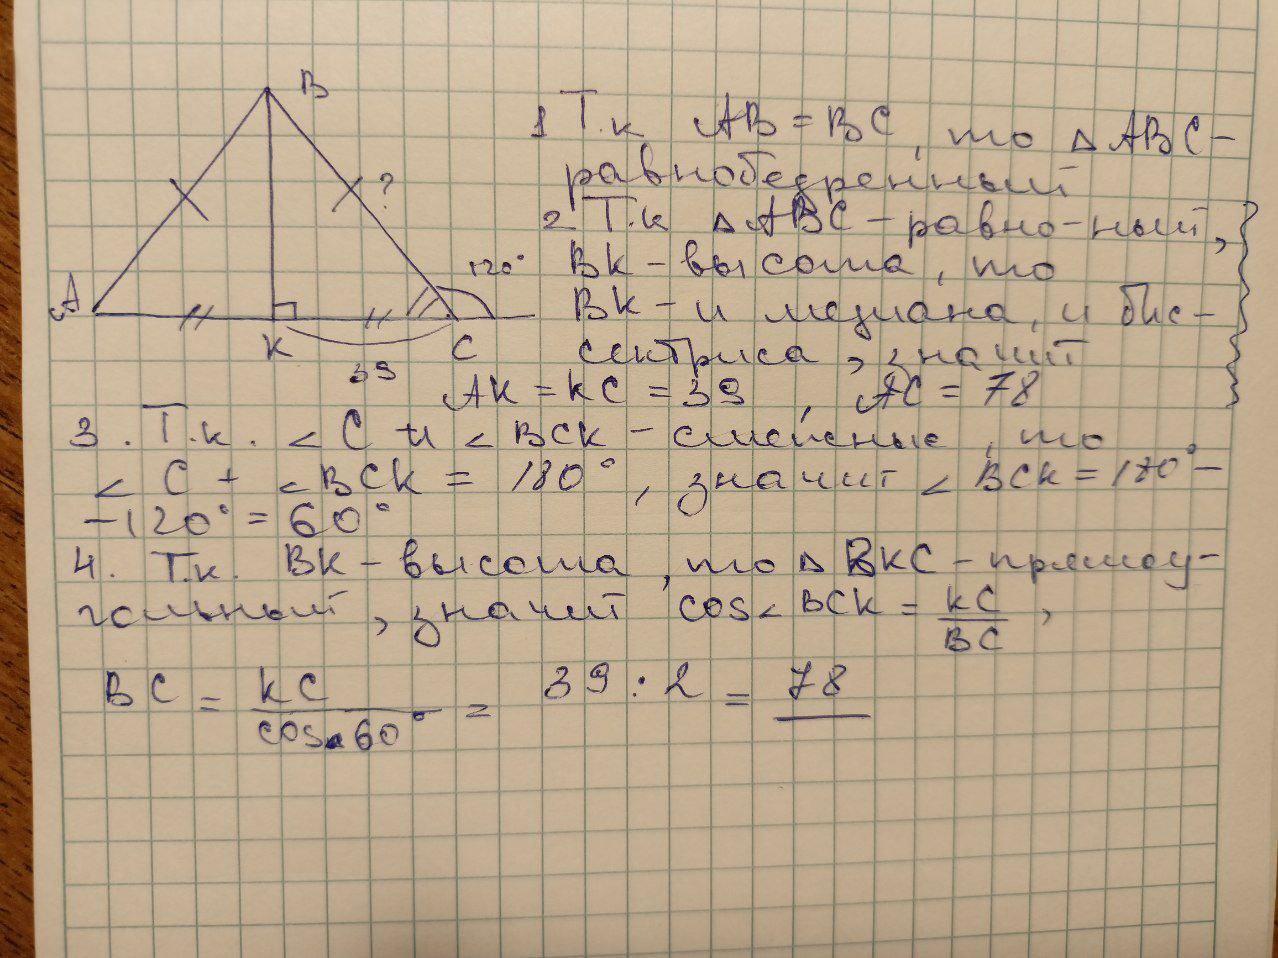 B
?
A
K
C
120°
39
1 Т.к AB = BC, то △ABC –
равнобедренный
2 Т.к △ABC – равно-ный,
BK – высота, то
BK – и медиана, и бис-
сектриса, значит
AK = KC = 39, AC = 78
3. Т.к. ∠C и ∠BCK – смежные, то
∠C + ∠BCK = 180°, значит ∠BCK = 180° –
– 120° = 60°
4. Т.к. BK – высота, то △BKC – прямоу-
гольный, значит cos∠BCK = KC/BC,
BC = KC/cos 60° = 39 : 2 = 78